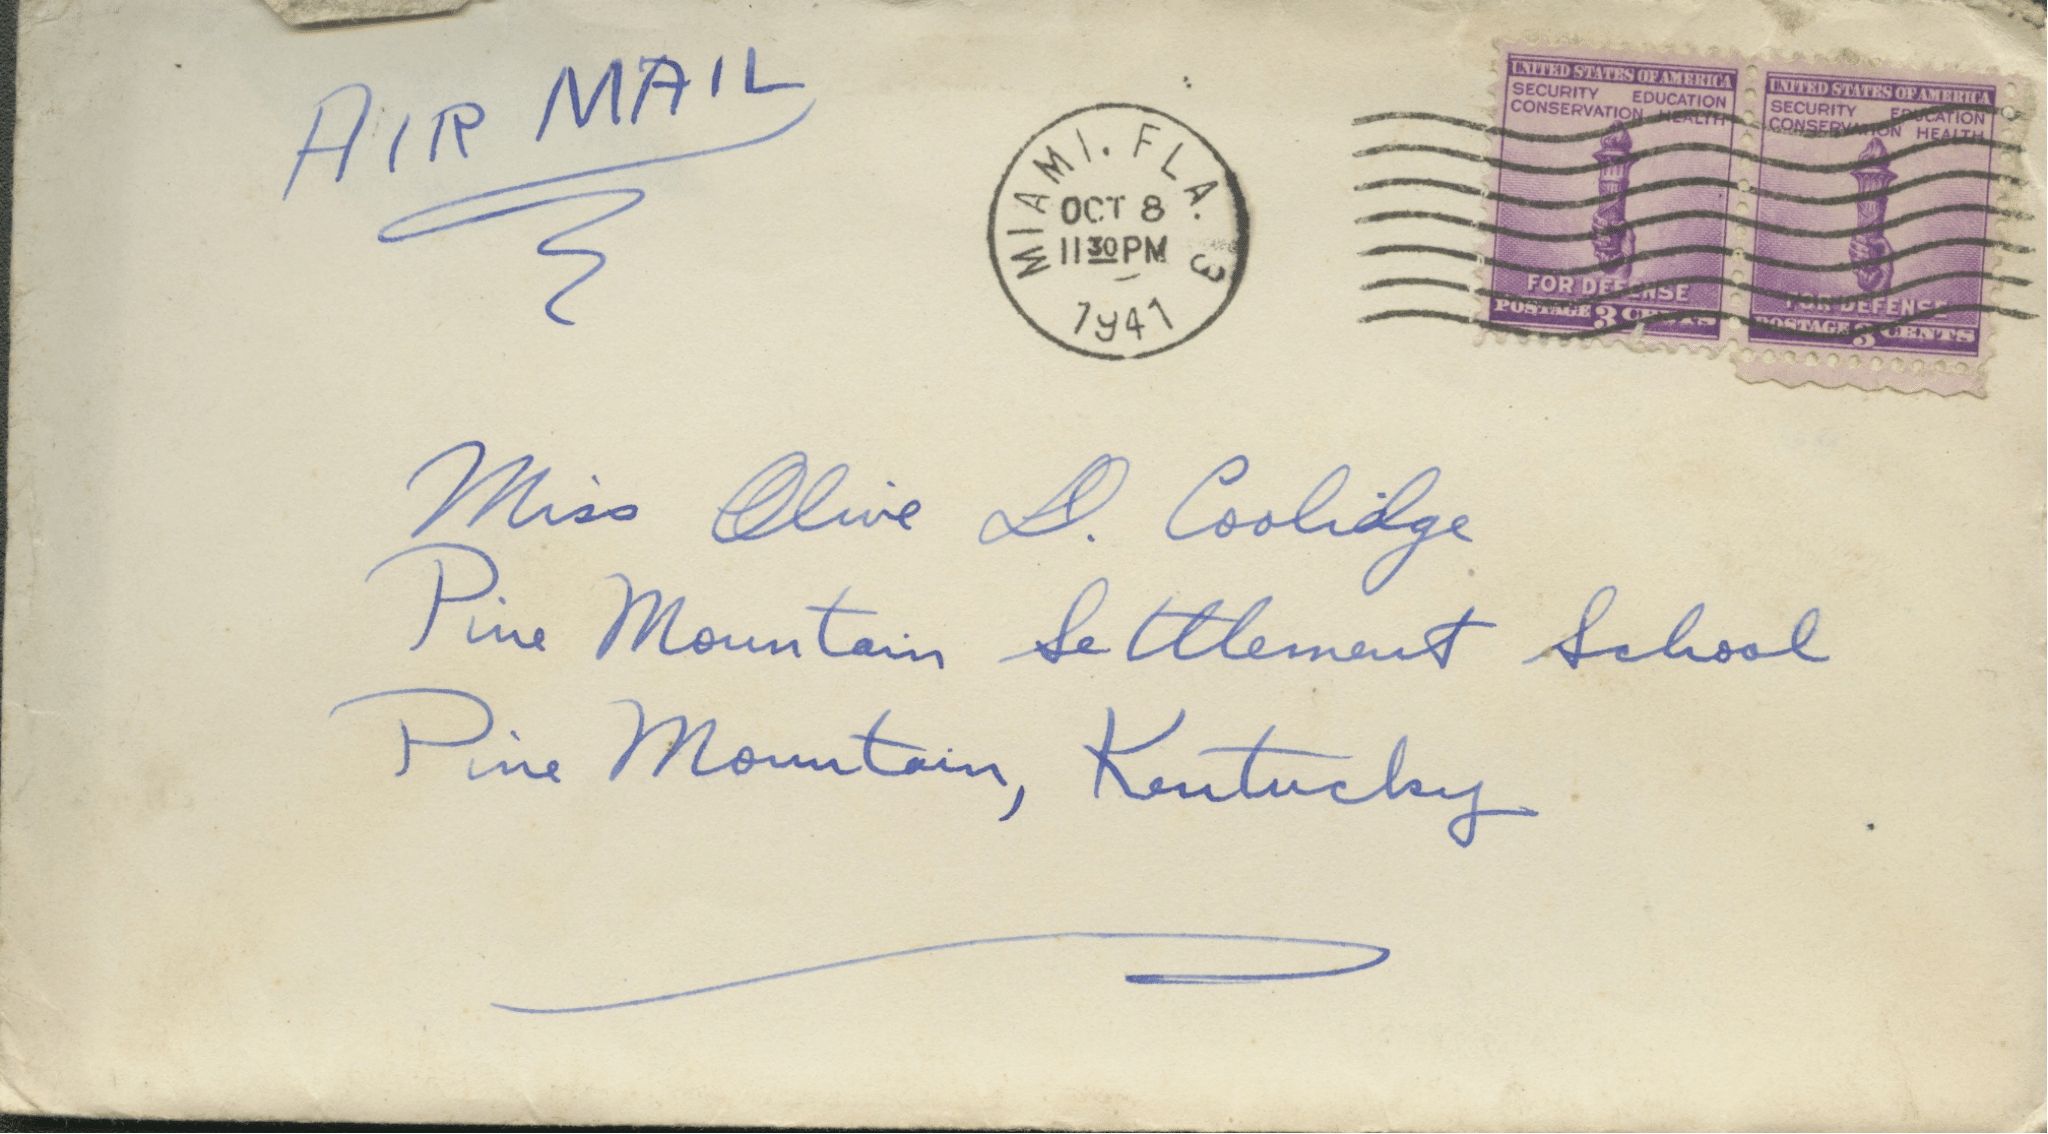 AIR MAIL
MIAMI, FLA. 3
OCT 8
11 30 PM
1941
UNITED STATES OF AMERICA
SECURITY EDUCATION
CONSERVATION HEALTH
FOR DEFENSE
POSTAGE 3 CENTS
UNITED STATES OF AMERICA
SECURITY EDUCATION
CONSERVATION HEALTH
FOR DEFENSE
POSTAGE 3 CENTS
Miss Olive D. Coolidge
Pine Mountain Settlement School
Pine Mountain, Kentucky